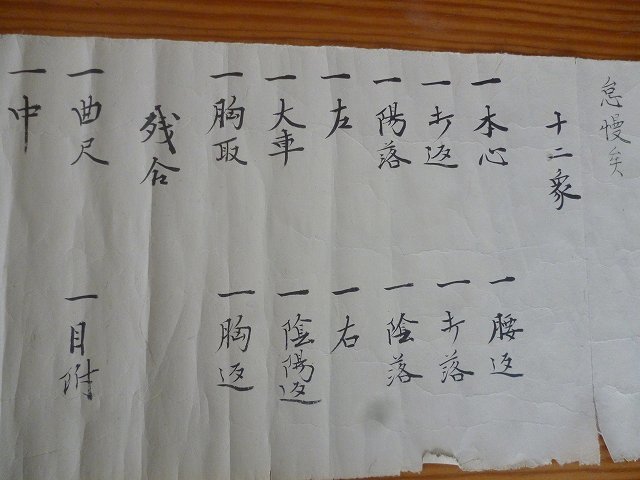 怠慢矣
十二象
一本心
一腰返
一打返
一打落
一陽落
一陰落
一左
一右
一大車
一陰陽返
一胸取
一胸返
残合
一曲尺
一目附
一中